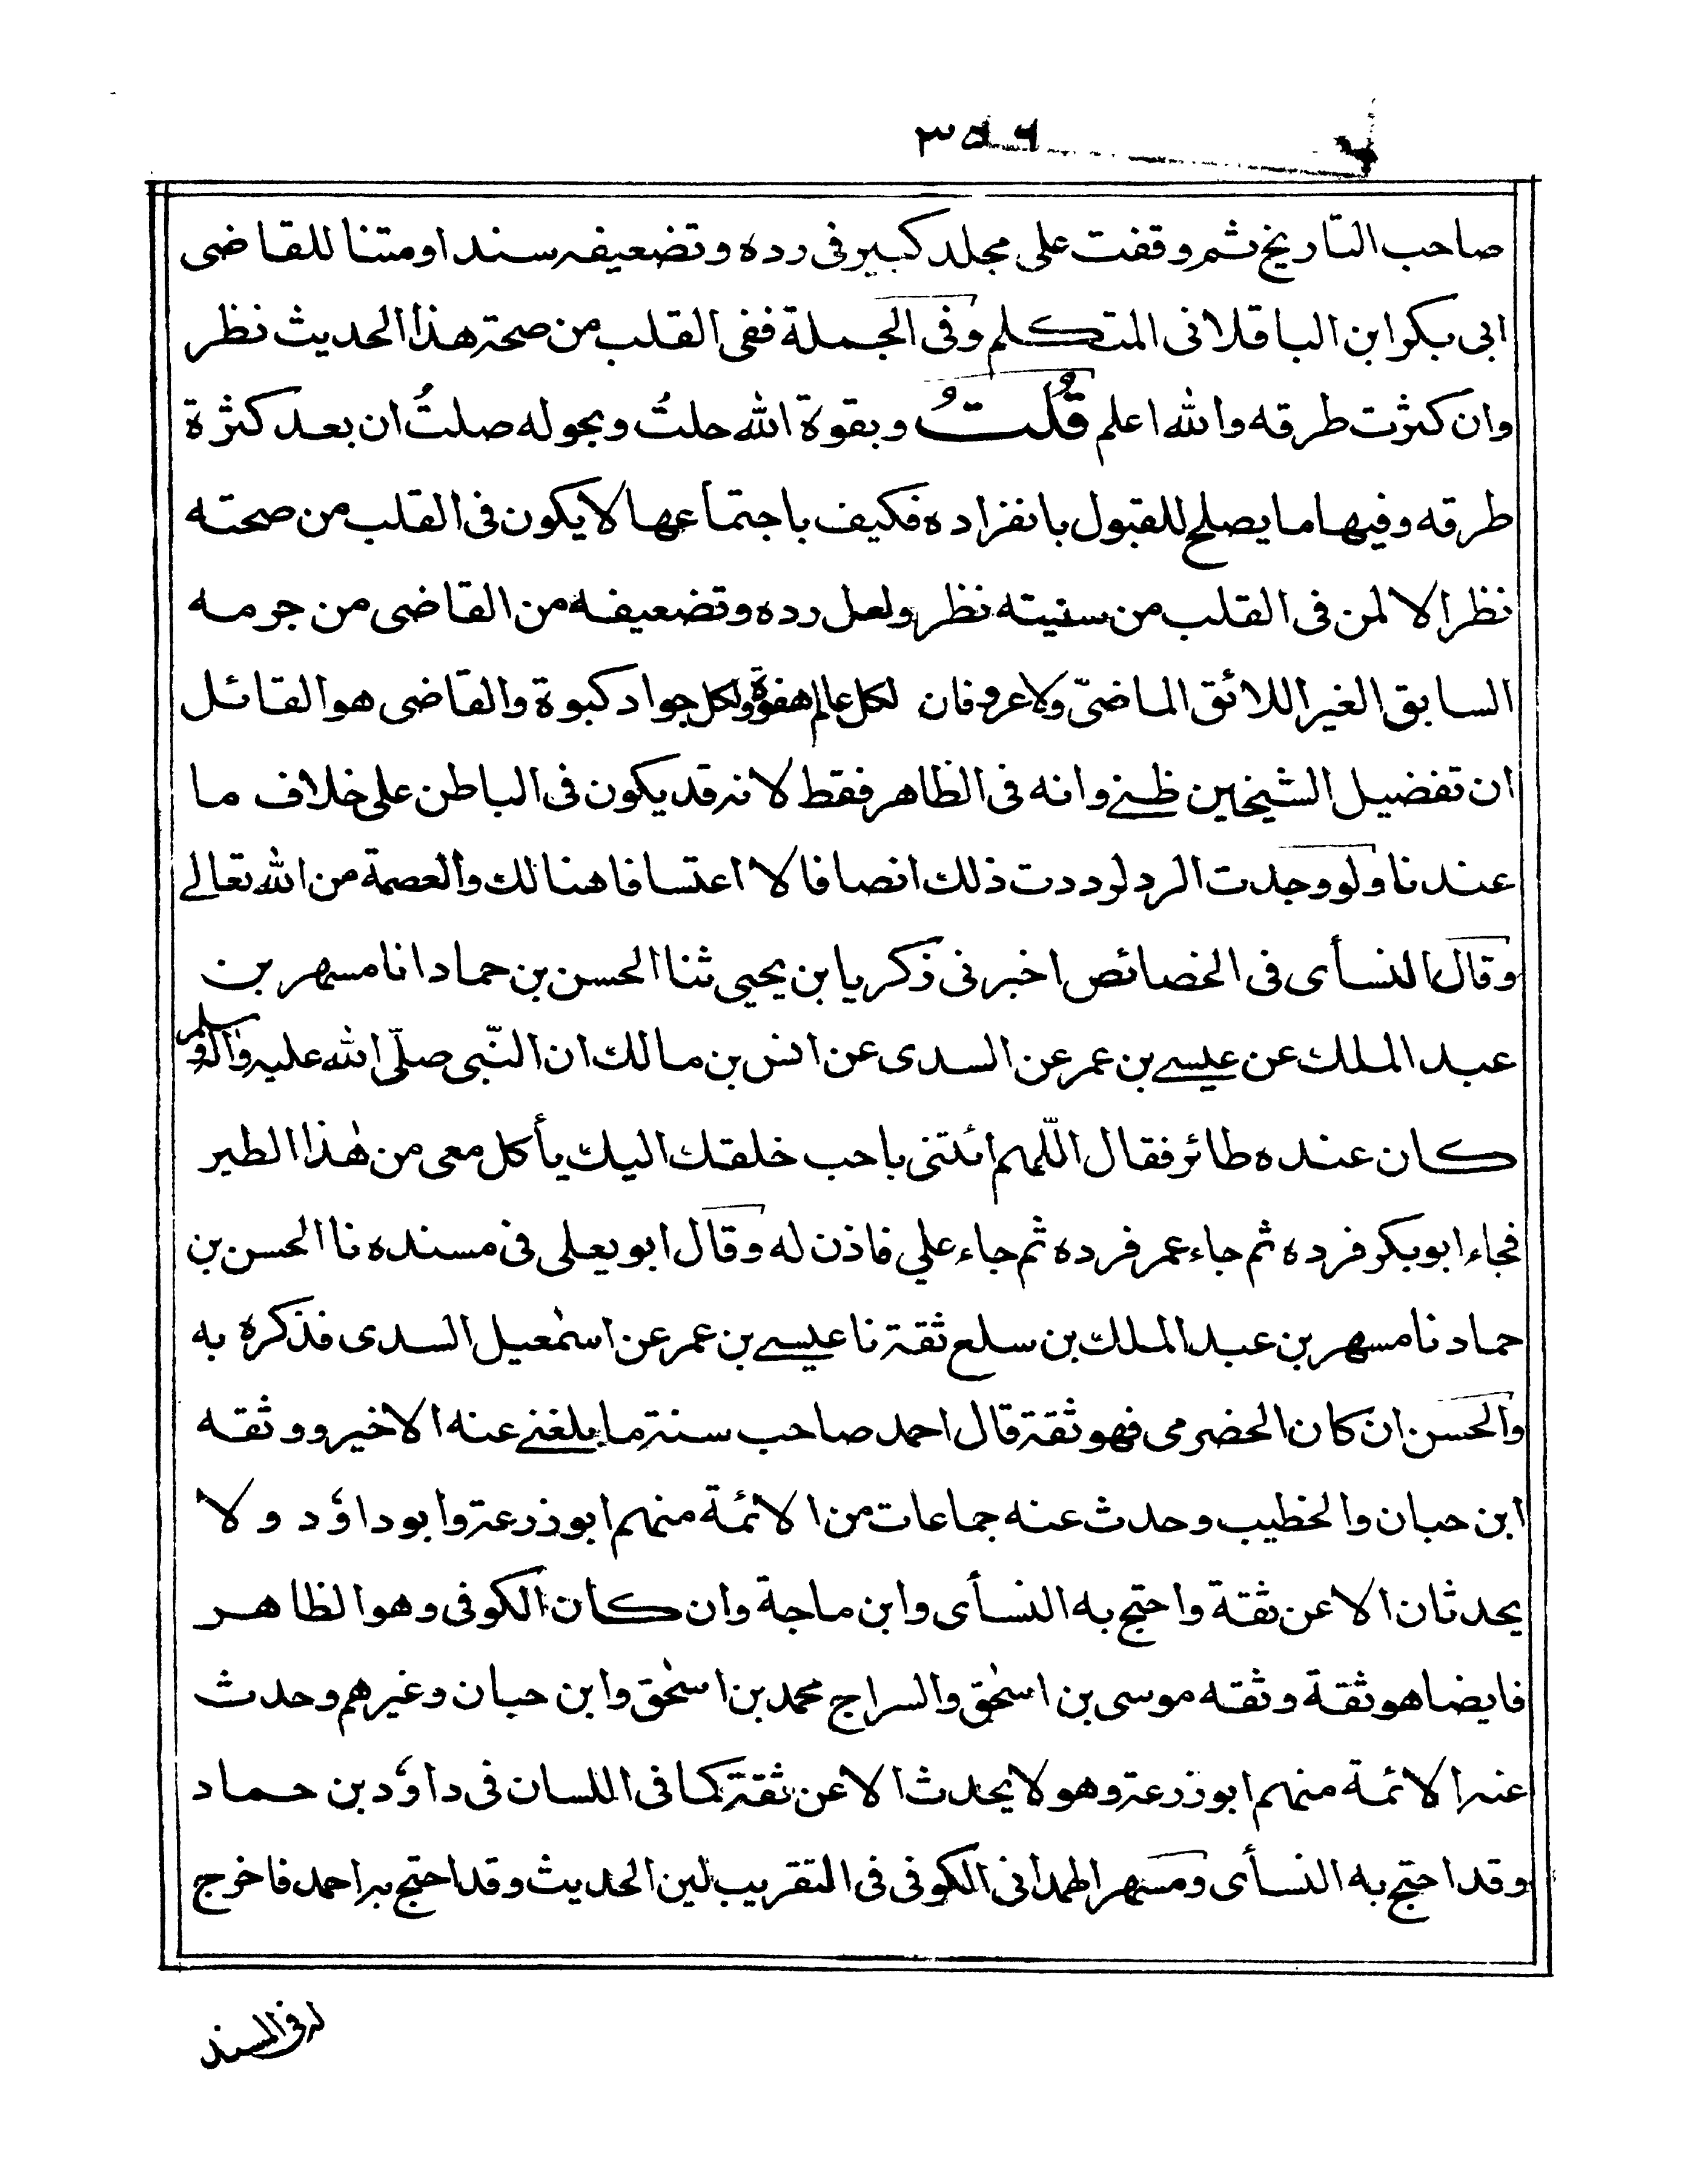 ٣٥٦
صاحب التاريخ ثم وقفت على مجلد كبير فى رده وتضعيفه سندا ومتنا للقاضى
ابى بكر ابن الباقلانى المتكلم وفى الجملة ففى القلب من صحة هذا الحديث نظر
وان كثرت طرقه والله اعلم قُلتُ وبقوة الله حلتُ وبحوله صلتُ ان بعد كثرة
طرقه وفيها ما يصلح للقبول بانفراده فكيف باجتماعها لا يكون فى القلب من صحته
نظر الا لمن فى القلب من سنيته نظر ولعل رده وتضعيفه من القاضى من جرمه
السابق الغير اللائق الماضىّ ولا غرو فان لكل عالم هفوة ولكل جواد كبوة والقاضى هو القائل
ان تفضيل الشيخين ظنے وانه فى الظاهر فقط لانه قد يكون فى الباطن على خلاف ما
عندنا ولو وجدت الرد لوددت ذلك انصافا لا اعتسافا هنالك والعصمة من الله تعالے
وقال النسأى فى الخصائص اخبرنى زكريا بن يحيى ثنا الحسن بن حماد انا مسهر بن
عبد الملك عن عيسے بن عمر عن السدى عن انس بن مالك ان النّبى صلّى الله عليه واٰله وسلم
كان عنده طائر فقال اللّٰهم ائتنى باحب خلقك اليك يأكل معى من هٰذا الطير
فجاء ابو بكر فرده ثم جاء عمر فرده ثم جاء علي فاذن له وقال ابو يعلى فى مسنده نا الحسن بن
حماد نا مسهر بن عبد الملك بن سلع ثقة نا عيسے بن عمر عن اسمٰعيل السدى فذكره به
والحسن ان كان الحضرمى فهو ثقة قال احمد صاحب سنة ما بلغنے عنه الا خير ووثقه
ابن حبان والخطيب وحدث عنه جماعات من الائمة منهم ابو زرعة وابو داؤد ولا
يحدثان الا عن ثقة واحتج به النسأى وابن ماجة وان كان الكوفى وهو الظاهر
فايضا هو ثقة وثقه موسى بن اسحٰق والسراج محمد بن اسحٰق وابن حبان وغيرهم وحدث
عنه الائمة منهم ابو زرعة وهو لا يحدث الا عن ثقة كما فى اللسان فى داؤد بن حماد
وقد احتج به النسأى ومسهر الهمدانى الكوفى فى التقريب لين الحديث وقد احتج به احمد فاخرج
له فى المسند